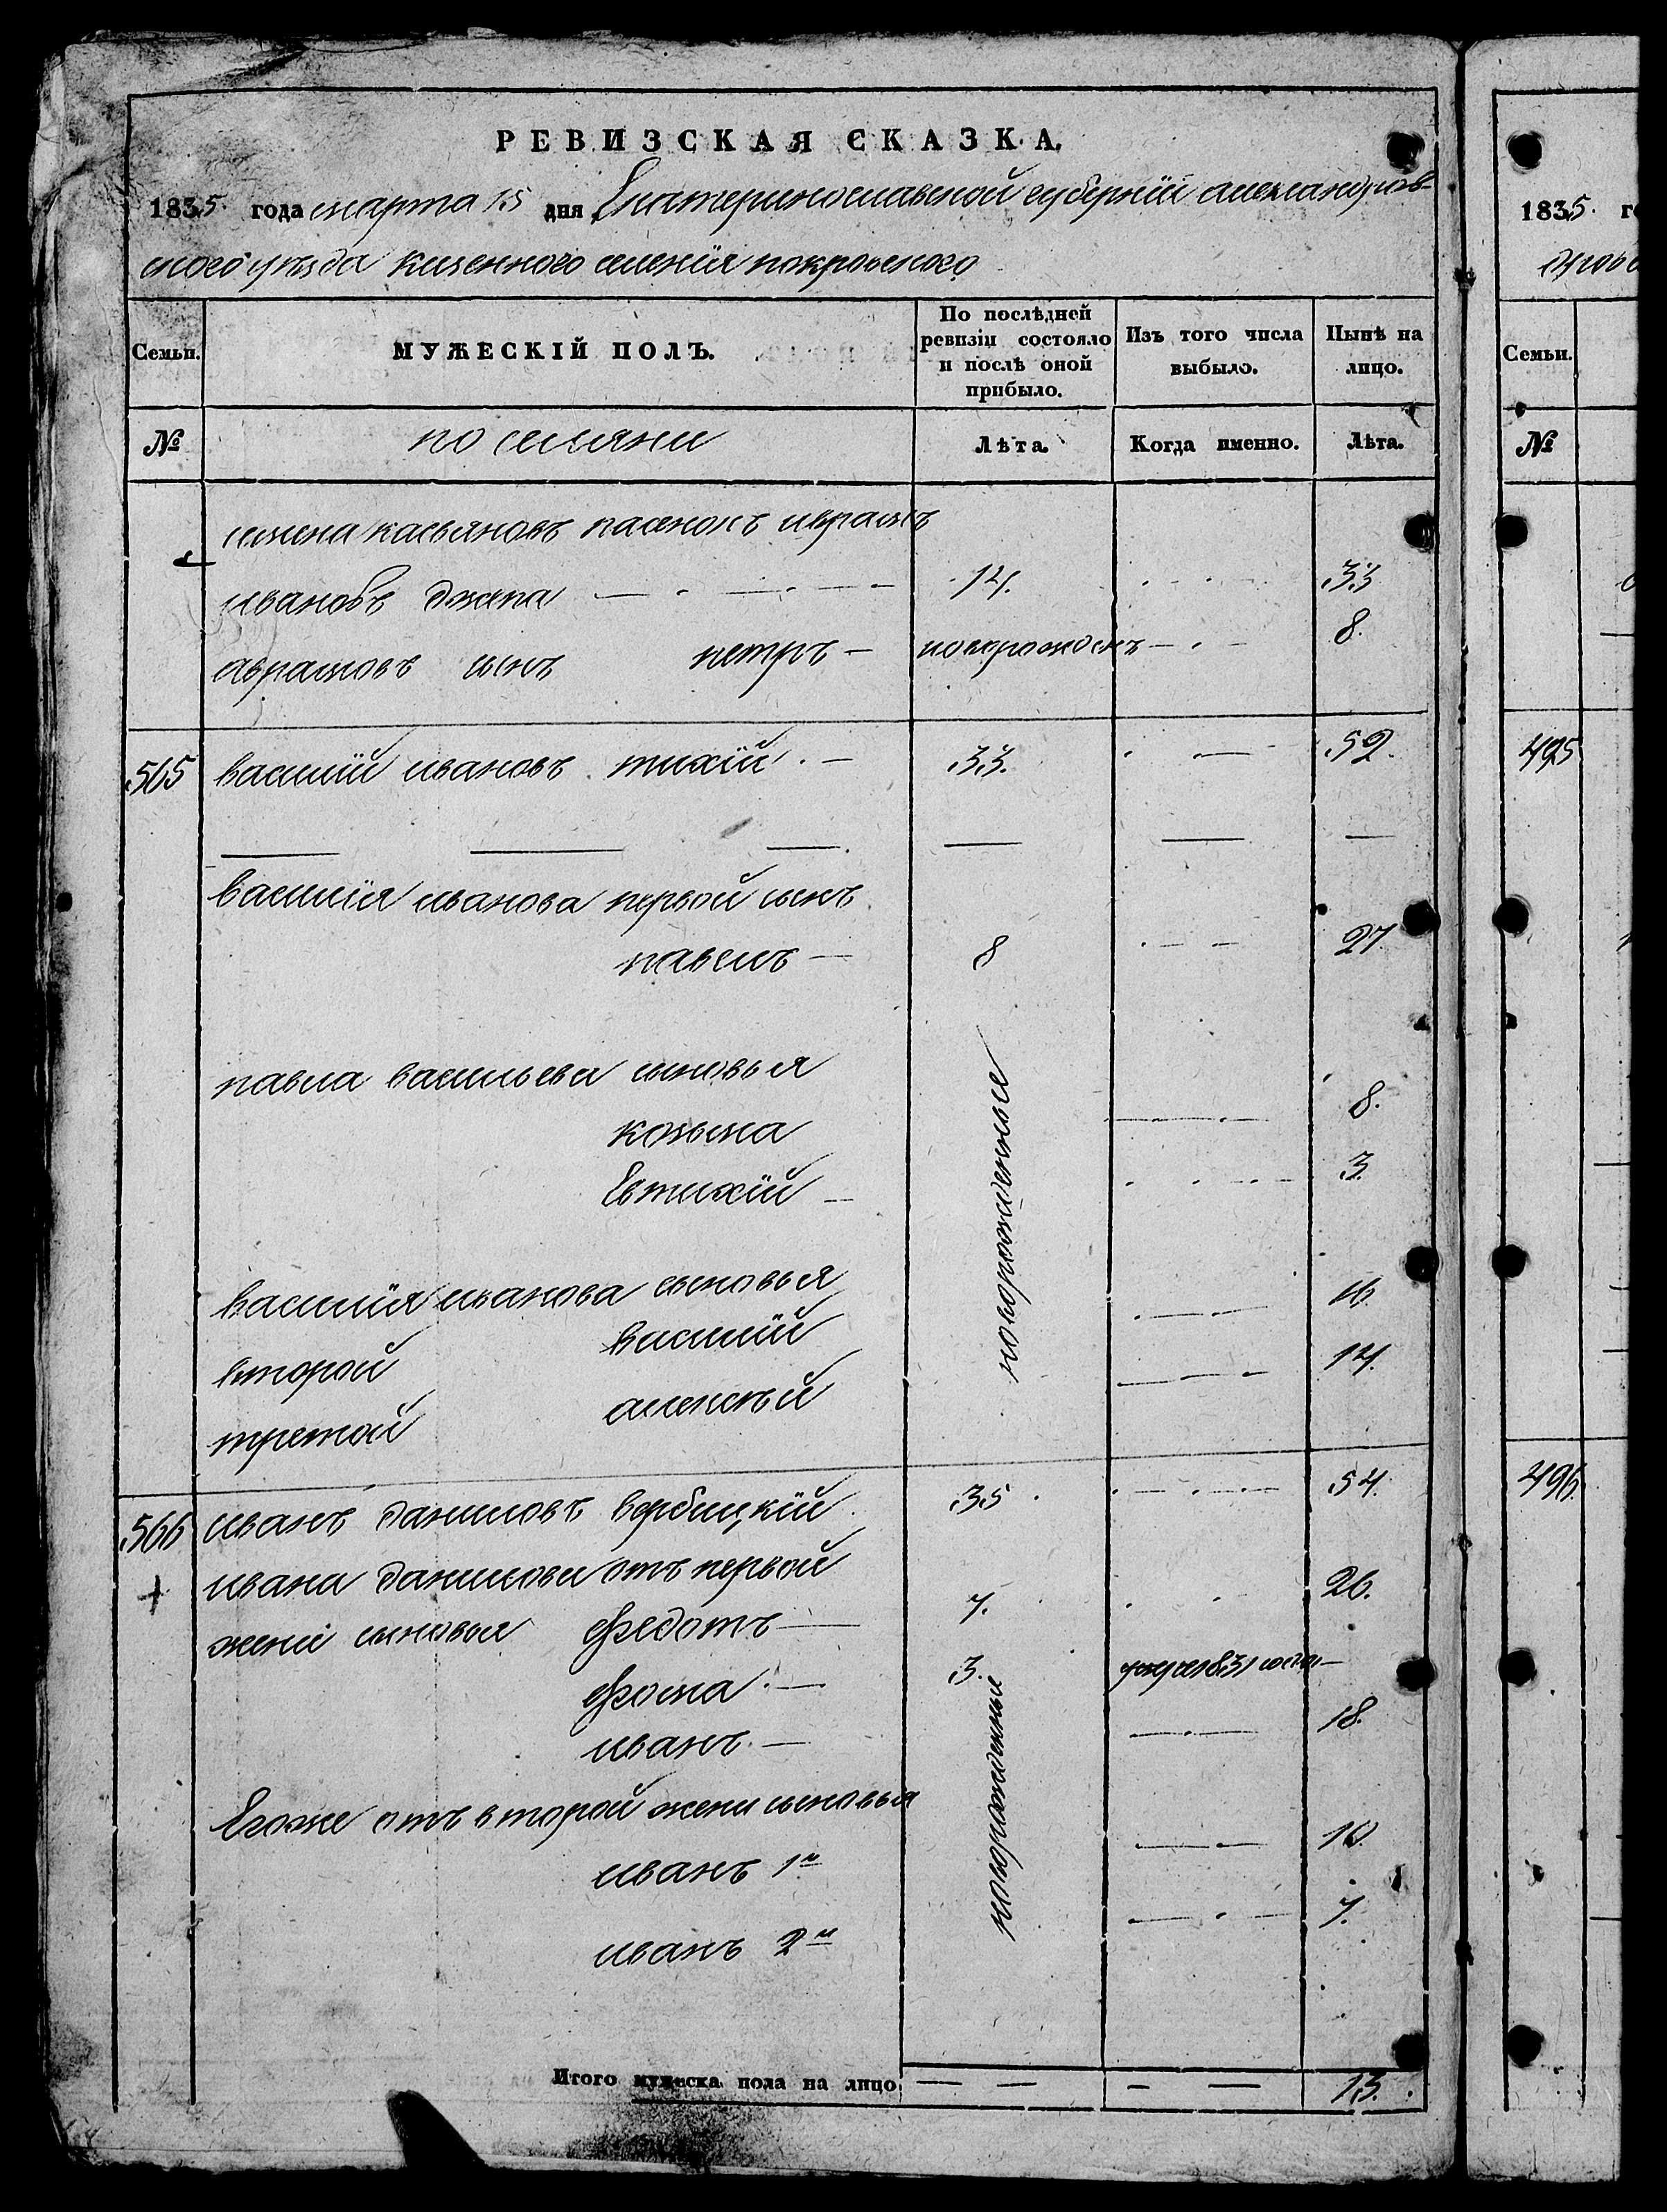 РЕВИЗСКАЯ СКАЗКА.
1835. года марта 15 дня Екатеринославской губернїи александров-
ского уѣзда казенного селенїя покровского
Семьи. МУЖЕСКІЙ ПОЛЪ. По послѣдней ревизіи состояло и послѣ оной прибыло. Изъ того числа выбыло. Нынѣ на лицо.
№ поселяни Лѣта. Когда именно. Лѣта.
касьяновъ пасенокъ
ивановъ джепа 14. 33
аврамовъ сынъ петръ — новорожденъ 8.
565 василїй ивановъ тихїй — 33. 52.
василїя иванова первой сынъ
павелъ — 8 27
павла васильева сыновья
козьма 8.
Евтихїй 3.
новорожденные
василїя иванова сыновья
второй василїй 16.
третой алексѣй 14.
566 иванъ даниловъ вербицкїй 35 54.
ивана данилова отъ первой
жени сыновья федотъ — 7. 26.
фома — 3. 1831 года
иванъ — 18.
новорожденные
Егоже отъ второй жени сыновья
иванъ 1й 10.
иванъ 2й 7.
Итого мужеска пола на лицо 13.
1835. го
Семьи.
№
495
496